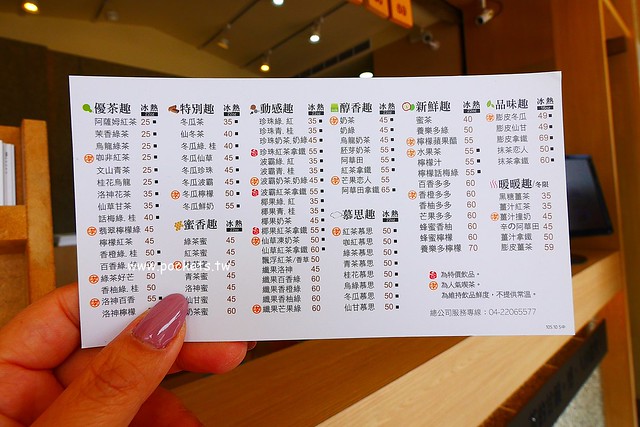 優茶趣 冰 熱
22oz
阿薩姆紅茶 25
茉香綠茶 25
烏龍綠茶 25
咖非紅茶 25
文山青茶 25
桂花烏龍 25
洛神花茶 35
仙草甘茶 35
話梅綠.桂 40
翡翠檸檬綠 45
檸檬紅茶 45
香橙綠.桂 50
百香綠
綠茶好芒 50
香柚綠.桂 50
洛神百香 55
洛神檸檬
特別趣 冰 熱
22oz
冬瓜茶 35
仙冬茶 40
冬瓜綠.桂 40
冬瓜仙草 45
冬瓜珍珠 45
冬瓜波霸 45
冬瓜檸檬 50
冬瓜鮮奶 55
蜜香趣 冰 熱
22oz
綠茶蜜 45
紅茶蜜 45
青茶蜜 45
洛神蜜 45
仙甘蜜 45
奶茶蜜 60
動感趣 冰 熱
22oz
珍珠綠.紅 35
珍珠青.桂 35
珍珠奶茶.奶綠 45
珍珠紅茶拿鐵 55
波霸綠.紅 35
波霸青.桂 35
波霸奶茶.奶綠 45
波霸紅茶拿鐵 55
椰果綠.紅 35
椰果青.桂 35
椰果奶茶 45
椰果紅茶拿鐵 55
仙草凍奶茶 50
仙草紅茶拿鐵 60
飄浮紅茶/香草 50
纖果洛神 45
纖果百香綠 60
纖果香橙綠 60
纖果香柚綠 60
纖果芒果綠 60
醇香趣 冰 熱
22oz
奶茶 45
奶綠 45
烏龍奶茶 45
胚芽奶茶 55
阿華田 55
紅茶拿鐵 55
芒果戀人 55
阿華田拿鐵 65
慕思趣 冰 熱
22oz
紅茶慕思 50
咖紅慕思 50
綠茶慕思 50
青茶慕思 50
桂花慕思 50
烏龍慕思 50
冬瓜慕思 50
仙甘慕思 50
新鮮趣 冰 熱
22oz
蜜茶 40
養樂多綠 50
檸檬蘋果醋 55
水果茶 55
檸檬汁 55
檸檬話梅綠 55
百香多多 60
香橙多多 60
香柚多多 60
芒果多多 60
蜂蜜香柚 60
蜂蜜檸檬 60
養樂多檸檬 70
為特價飲品。
為人氣喫茶。
為維持飲品鮮度，不提供常溫。
總公司服務專線：04-22065577
品味趣 冰 熱
16oz
膨皮冬瓜 49
膨皮仙甘 49
膨皮拿鐵 69
抹茶戀人 50
抹茶拿鐵 60
暖暖趣/冬限
黑糖薑茶 35
薑汁紅茶 35
薑汁撞奶 45
辛の阿華田 45
薑汁拿鐵 50
膨皮薑茶 59
www.pockets.tw